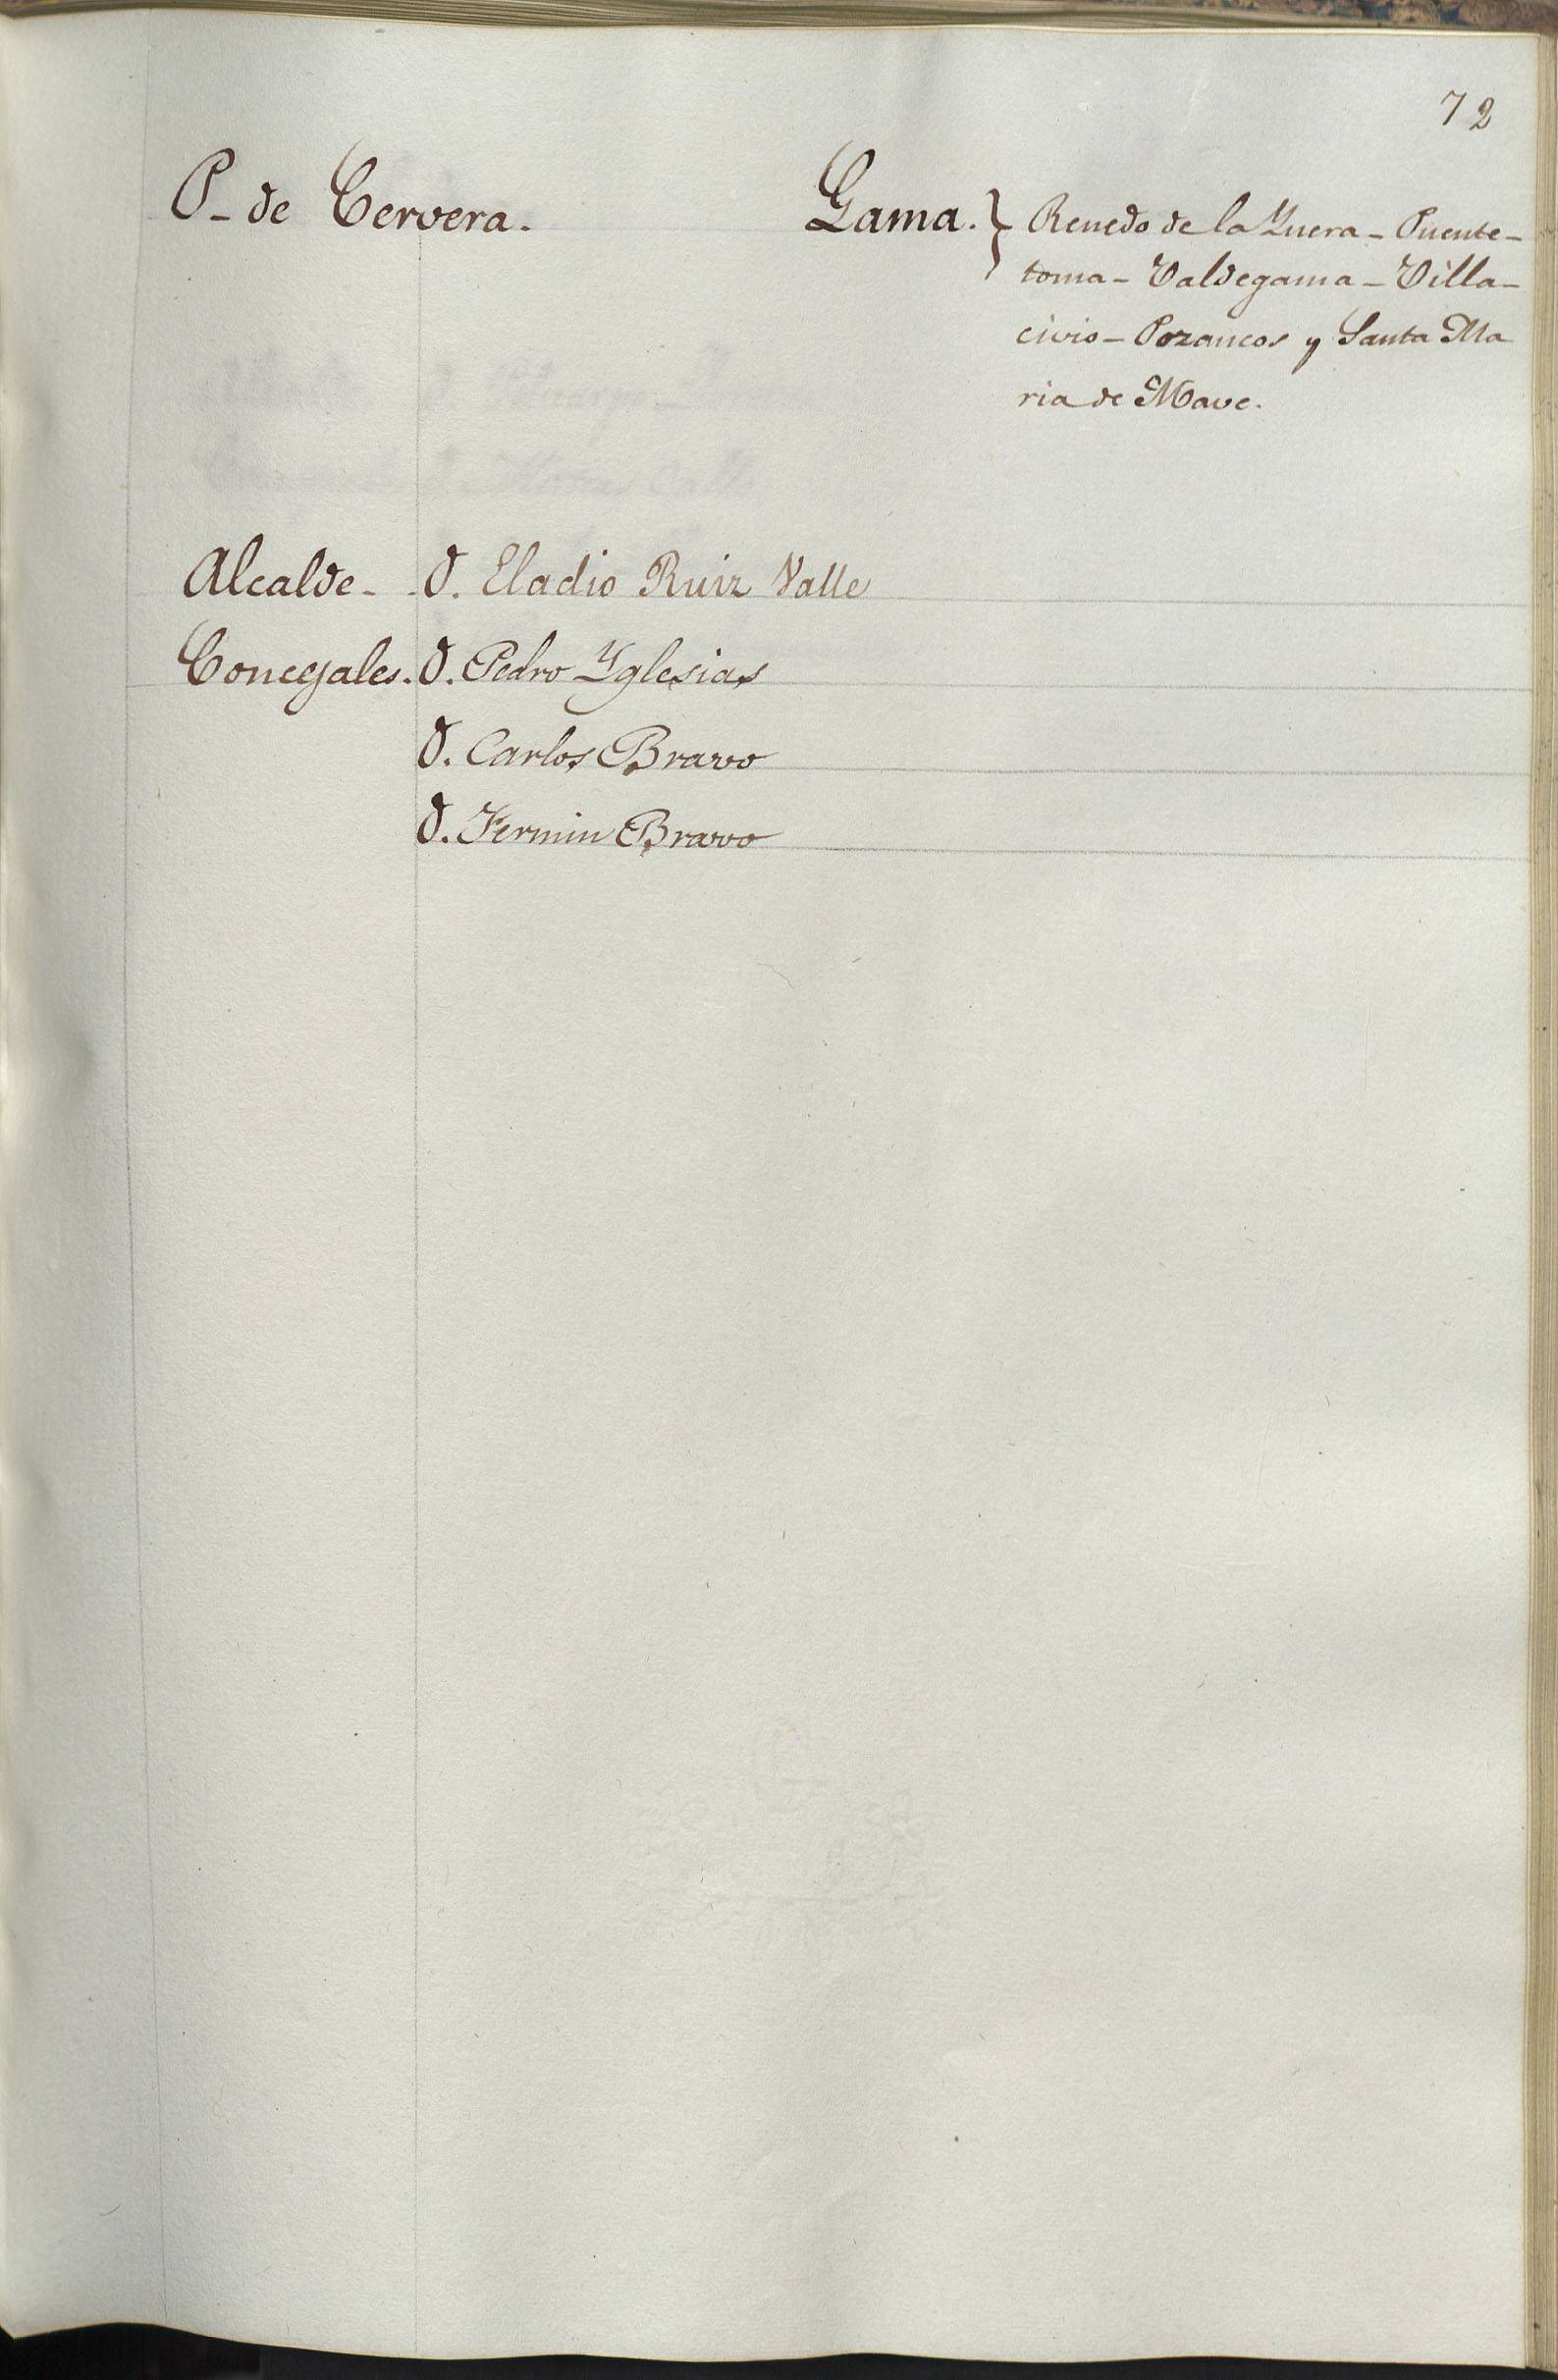 72
P- de Cervera. Gama. } Renedo de la Ynera - Puente-
toma - Valdegama - Villa-
civio - Pozancos y Santa Ma
ria de Mave.
Alcalde - D. Eladio Ruiz Valle
Concejales. D. Pedro Yglesias
D. Carlos Bravo
D. Fermin Bravo